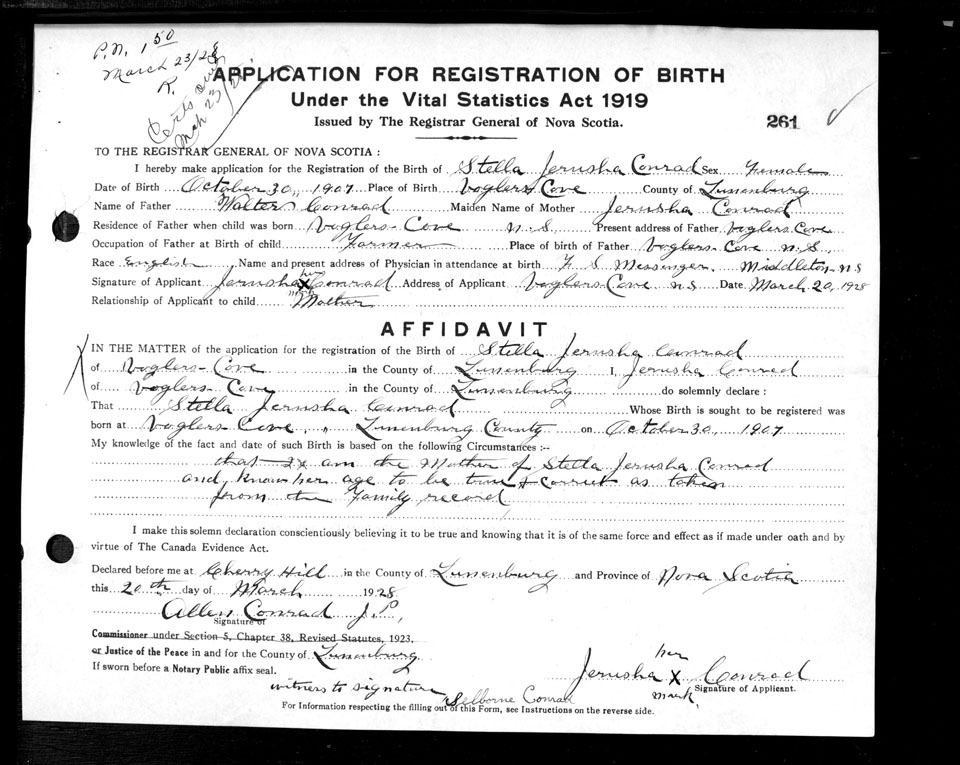 P.N. 1 50
March 23/28
R.
Certs
Mch 23/28
APPLICATION FOR REGISTRATION OF BIRTH
Under the Vital Statistics Act 1919
Issued by The Registrar General of Nova Scotia.
261
TO THE REGISTRAR GENERAL OF NOVA SCOTIA :
I hereby make application for the Registration of the Birth of Stella Jerusha Conrad Sex Female
Date of Birth October 30, 1907 Place of Birth Voglers Cove County of Lunenburg
Name of Father Walter Conrad Maiden Name of Mother Jerusha Conrad
Residence of Father when child was born Voglers Cove N.S Present address of Father Voglers Cove
Occupation of Father at Birth of child Farmer Place of birth of Father Voglers Cove N.S,
Race English Name and present address of Physician in attendance at birth F S Messenger. Middleton N S
Signature of Applicant Jerusha her X mark Conrad Address of Applicant Voglers Cove N S Date March 20, 1928
Relationship of Applicant to child Mother
AFFIDAVIT
IN THE MATTER of the application for the registration of the Birth of Stella Jerusha Conrad
of Voglers Cove in the County of Lunenburg I, Jerusha Conrad
of Voglers Cove in the County of Lunenburg do solemnly declare :
That Stella Jerusha Conrad Whose Birth is sought to be registered was
born at Voglers Cove, " Lunenburg County on October 30, 1907
My knowledge of the fact and date of such Birth is based on the following Circumstances :--
that I am the Mother of Stella Jerusha Conrad
and know her age to be true & correct as taken
from the Family record
I make this solemn declaration conscientiously believing it to be true and knowing that it is of the same force and effect as if made under oath and by
virtue of The Canada Evidence Act.
Declared before me at Cherry Hill in the County of Lunenburg and Province of Nova Scotia
this 20th day of March 1928
Allen Conrad J.P,
Signature of
Commissioner under Section 5, Chapter 38, Revised Statutes, 1923,
or Justice of the Peace in and for the County of Lunenburg
If sworn before a Notary Public affix seal.
her
Jerusha X Conrad
mark,
Signature of Applicant.
witness to signature
Selborne Conrad
For Information respecting the filling out of this Form, see Instructions on the reverse side.